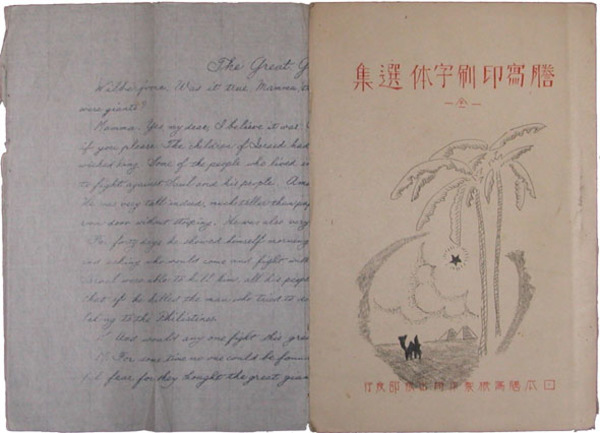 The Great G
Wilberforce. Was it true, Mamma, t
were giants?
Mamma. Yes my dear, I believe it was:
if you please. The children of Israel had
wicked king. Some of the people who lived in
to fight against Saul and his people. Amo
He was very tall indeed, much taller than pap
one door without stooping. He was also very
For forty days he showed himself morning
and asking who would come and fight with
Israel were able to kill him, all his people
that if he killed the man who tried to do
belong to the Philistines.
And would any one fight this grea
M. For some time no one could be foun
felt fear for they thought the great gian
謄寫印刷字体選集
—全—
日本謄寫版 出版部發行